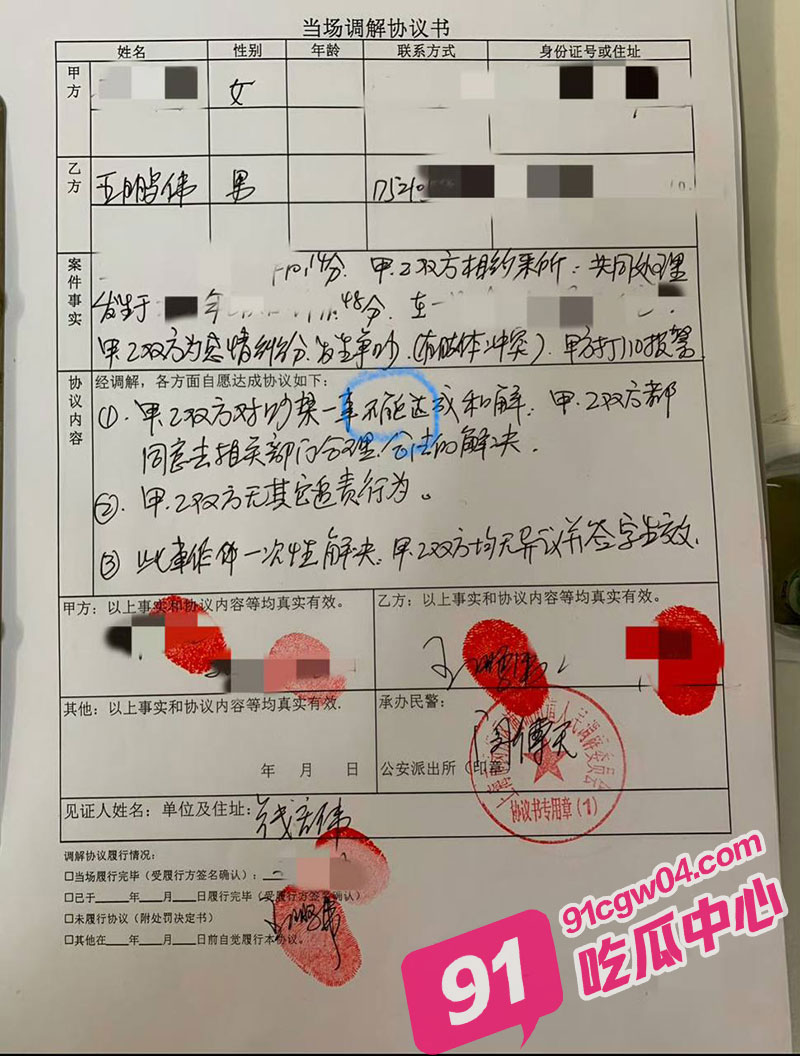 当场调解协议书
姓名 性别 年龄 联系方式 身份证号或住址
甲方 女
乙方 王鹏伟 男
案件事实
14分. 甲.乙双方相约来所. 共同处理
发生于 年 48分. 在
甲.乙双方为感情纠纷.发生争吵.(有肢体冲突). 甲方打110报警
协议内容
经调解,各方面自愿达成协议如下:
①. 甲.乙双方对吵架一事不能达成和解. 甲.乙双方都
同意去相关部门合理.合法的解决.
②. 甲.乙双方无其它追责行为。
③ 此事作休一次性解决.甲.乙双方均无异议并签字生效.
甲方:以上事实和协议内容等均真实有效。
乙方:以上事实和协议内容等均真实有效。
其他:以上事实和协议内容等均真实有效.
年 月 日
承办民警:
公安派出所(印章)
人民调解委员会
协议书专用章(1)
见证人姓名:单位及住址:
调解协议履行情况:
□当场履行完毕(受履行方签名确认):
□已于____年____月____日履行完毕(受履行方签名确认)
□未履行协议(附处罚决定书)
□其他在____年____月____日前自觉履行本协议。
91
91cgw04.com
吃瓜中心